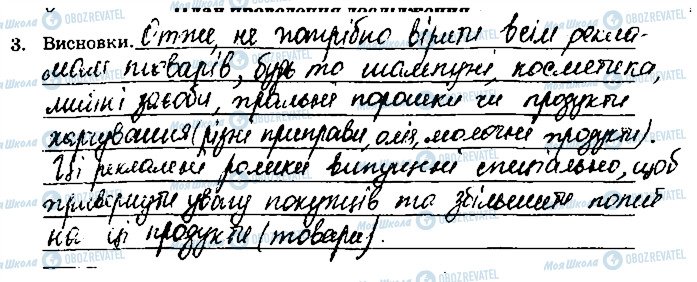 План проведення дослідження
3. Висновки. Отже, не потрібно вірити всім рекла-
мам товарів, будь то шампуні, косметика,
миючі засоби, пральні порошки чи продукти
харчування (різні приправи, олія, молочні продукти).
Ці рекламні ролики випущені спеціально, щоб
привернути увагу покупців та збільшити попит
на ці продукти (товари).